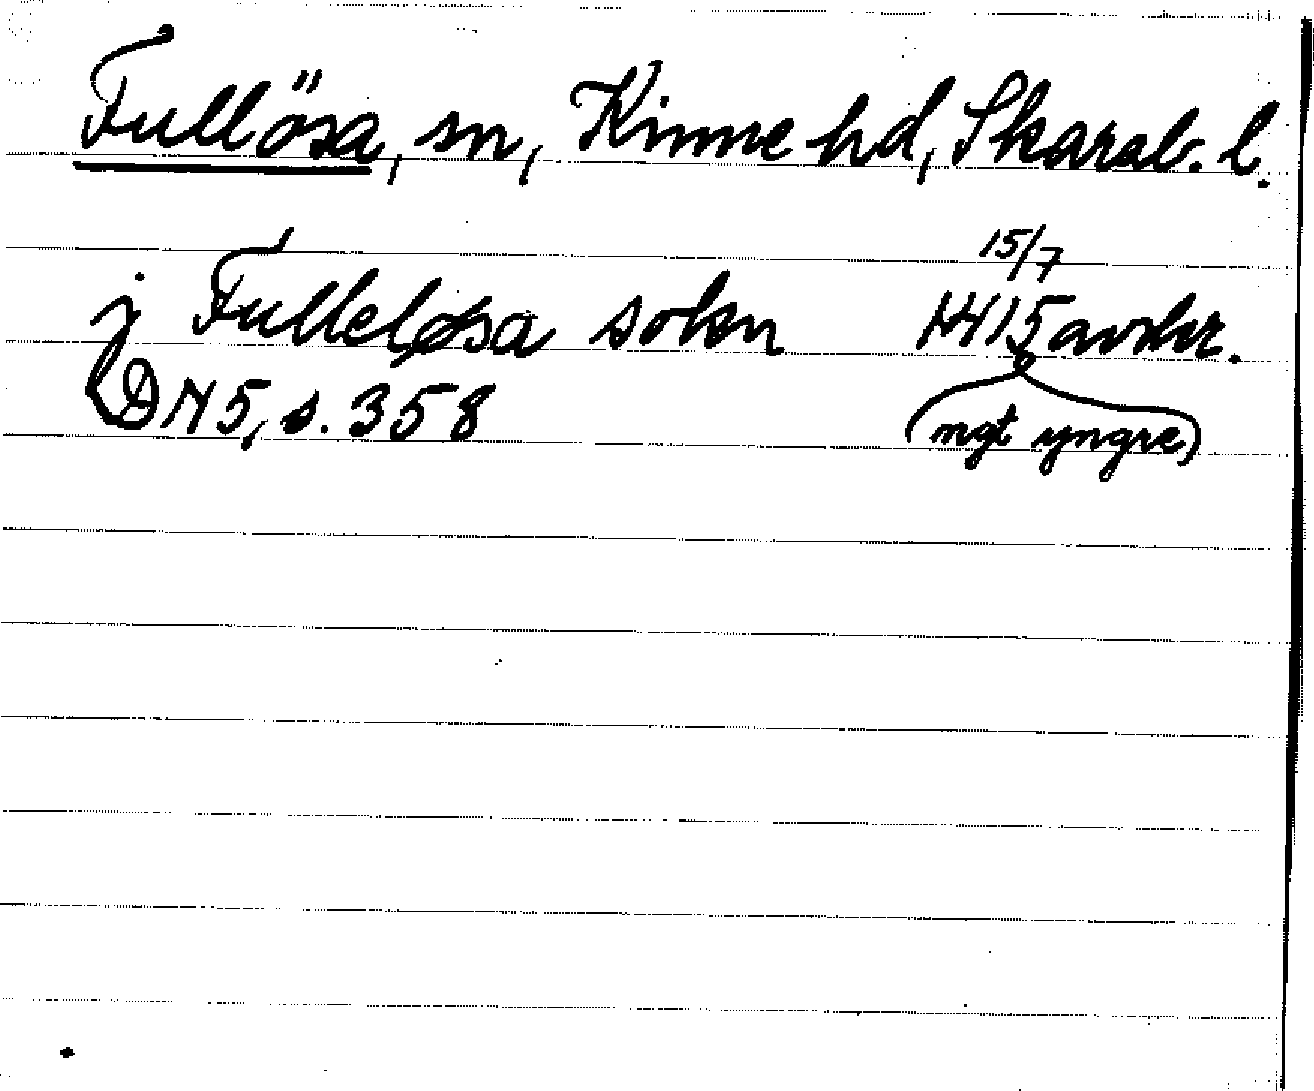 Fullösa, sn, Kinne hd, Skarab. l.
j Fulleløsa sokn 15/7 1415 avskr.
DN 5, s. 358 (mgt yngre)